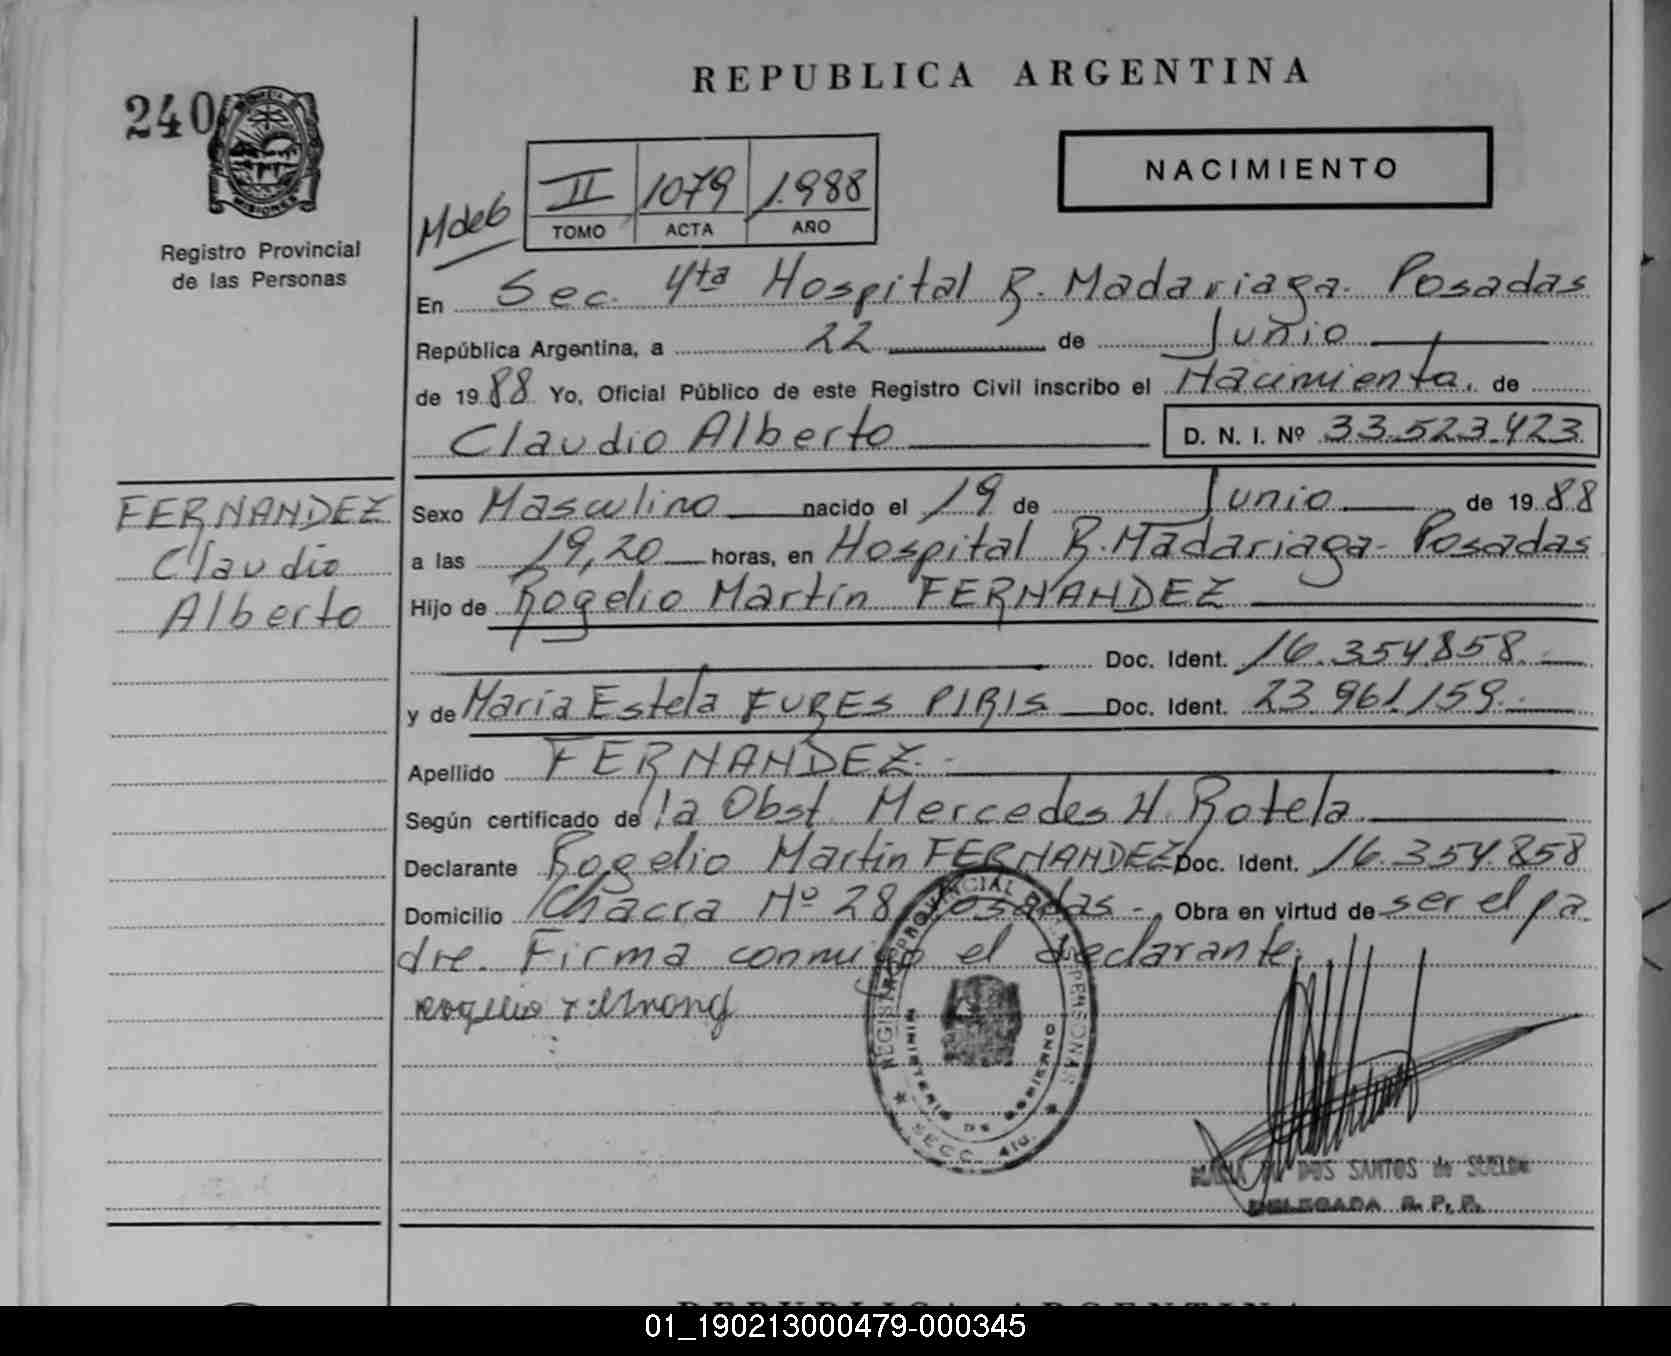 REPUBLICA ARGENTINA
240
MISIONES
Registro Provincial
de las Personas
NACIMIENTO
II 1079 1.988
TOMO ACTA AÑO
En Sec. 4ta Hospital R. Madariaga. Posadas
República Argentina, a 22 de Junio
de 19 88 Yo, Oficial Público de este Registro Civil inscribo el Nacimiento, de
Claudio Alberto D. N. I. Nº 33.523.423
FERNANDEZ
Claudio
Alberto
Sexo Masculino nacido el 19 de Junio de 19 88
a las 19,20 horas, en Hospital R. Madariaga - Posadas
Hijo de Rogelio Martín FERNANDEZ
Doc. Ident. 16.354.858
y de María Estela FURES PIRIS Doc. Ident. 23.961.159
Apellido FERNANDEZ.-
Según certificado de la Obst. Mercedes H. Rotela
Declarante Rogelio Martín FERNANDEZ Doc. Ident. 16.354.858
Domicilio Chacra Nº 28 Posadas -, Obra en virtud de ser el pa
dre. Firma conmigo el declarante.
REGISTRO PROVINCIAL DE LAS PERSONAS
MINISTERIO DE GOBIERNO
SECC. 4ta.
DOS SANTOS de
DELEGADA R. P. P.
REPUBLICA ARGENTINA
01_190213000479-000345